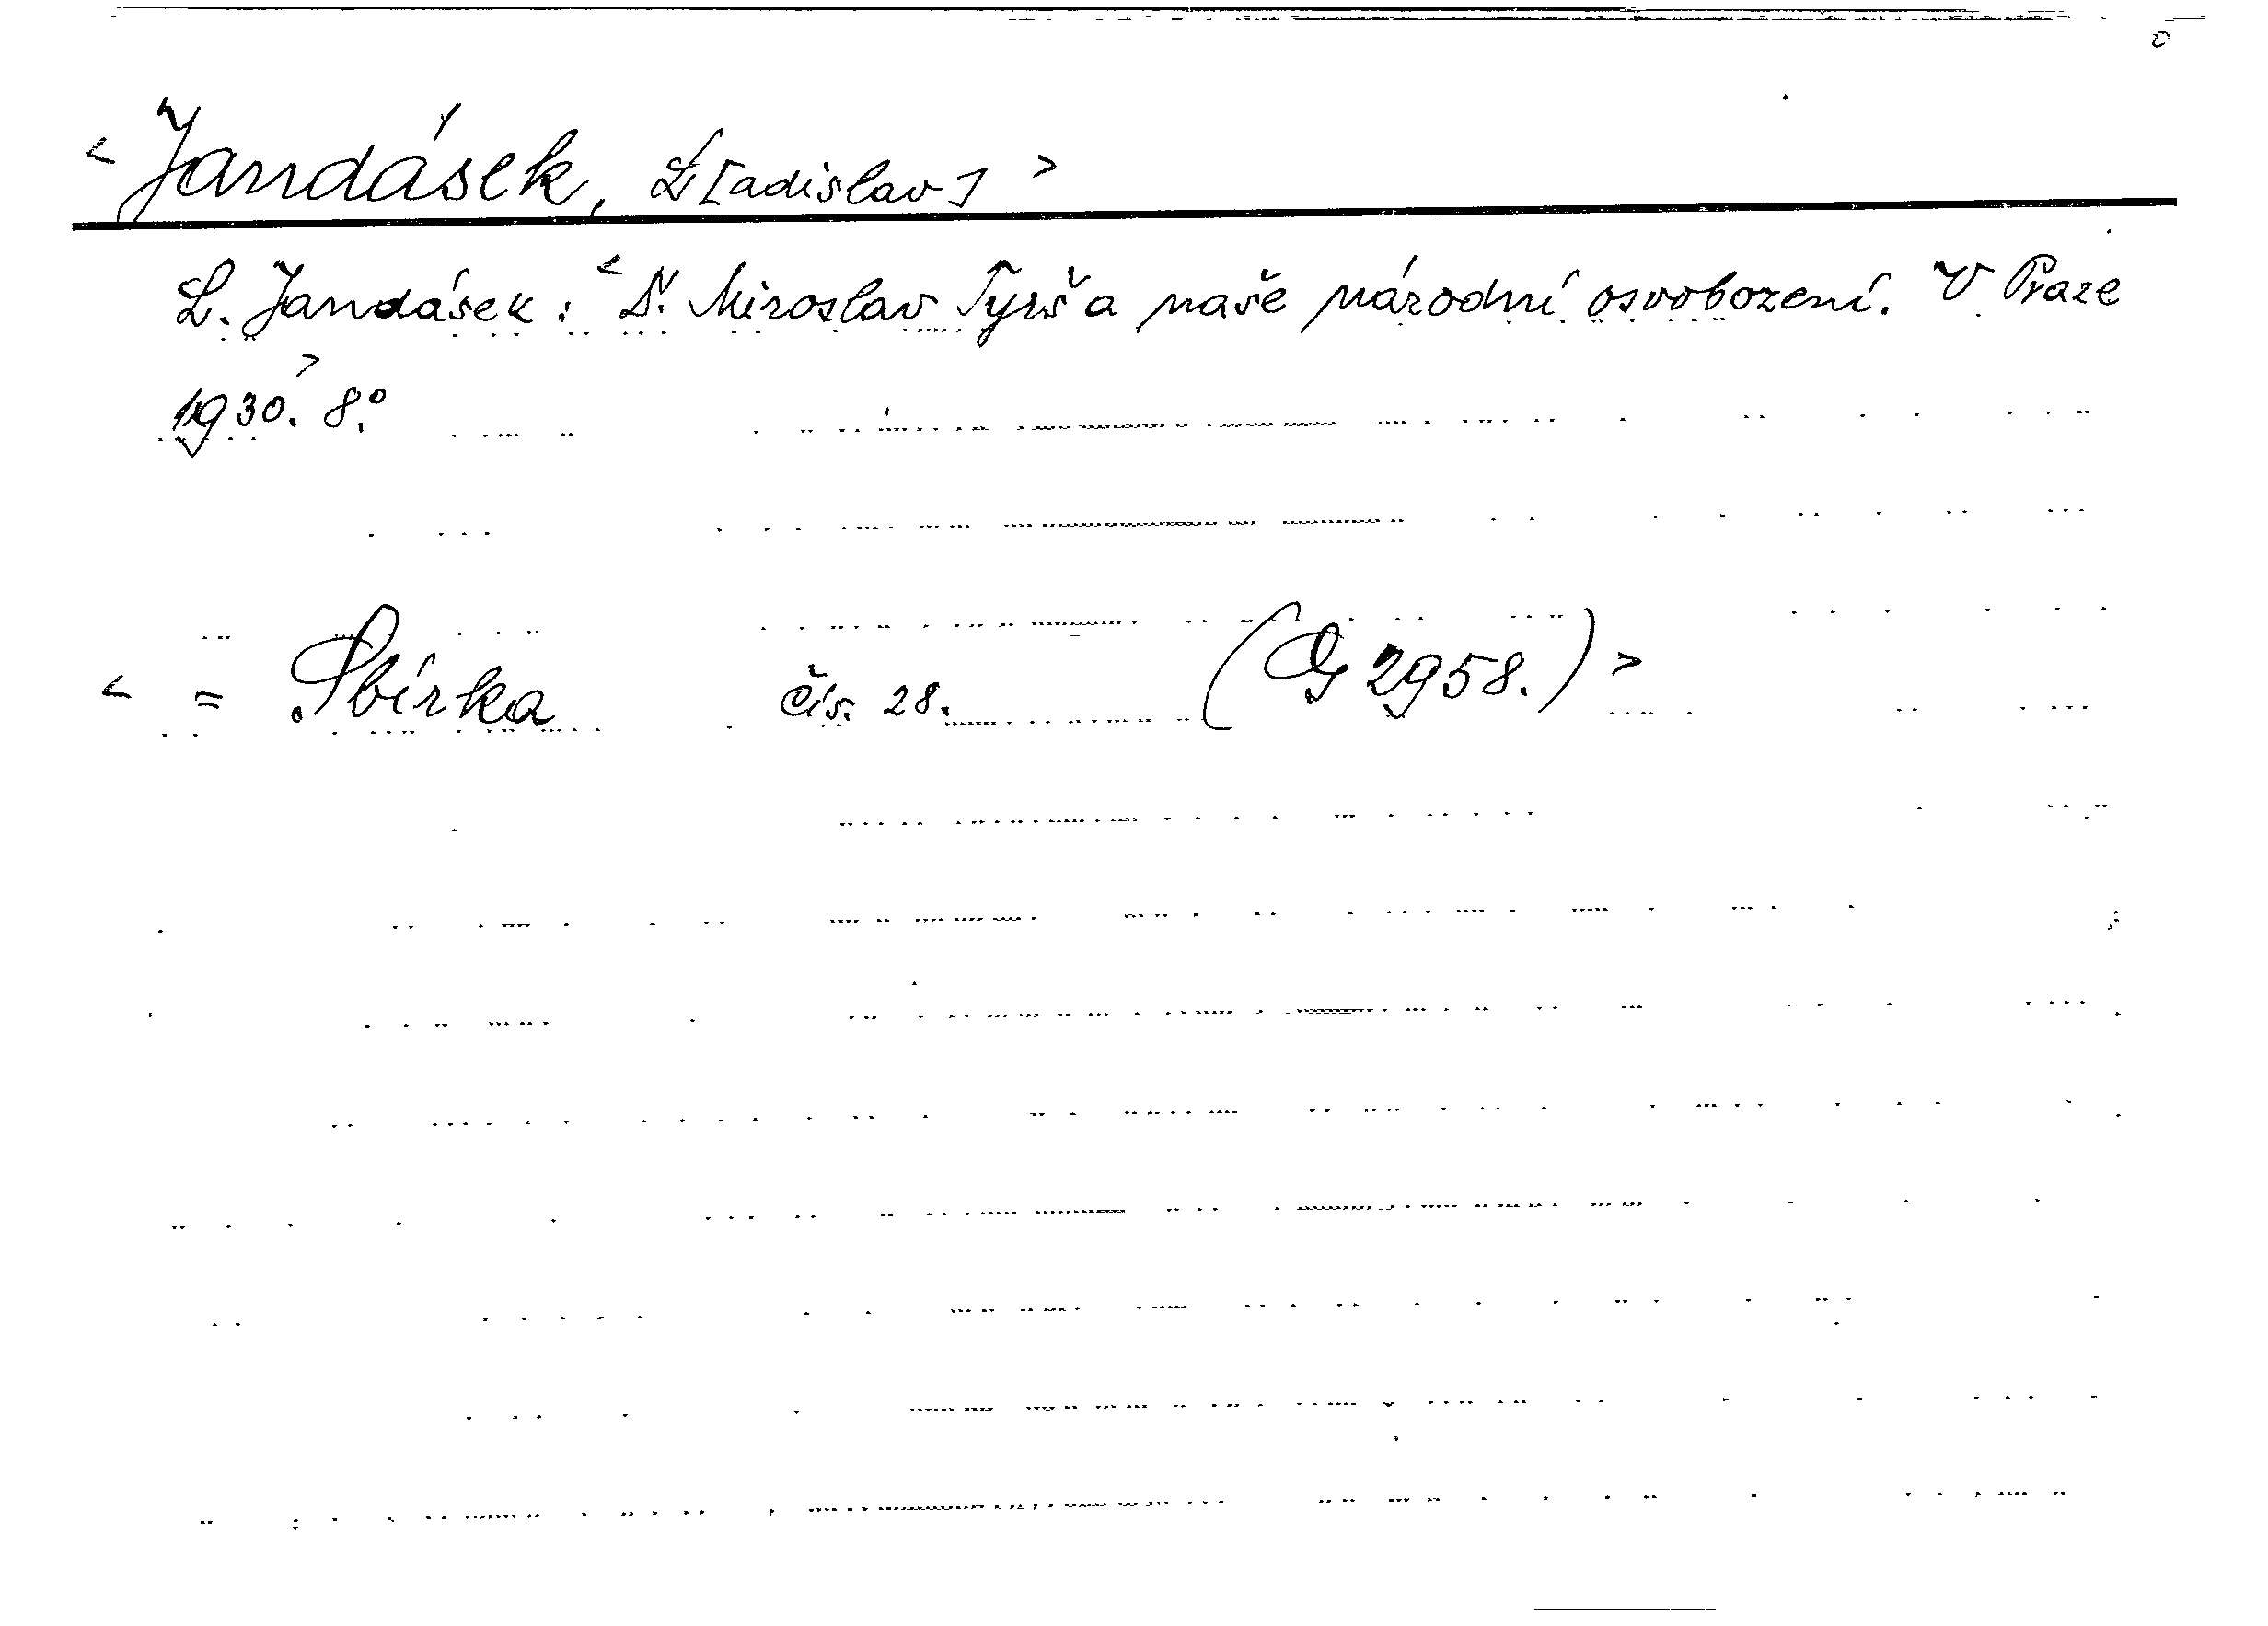 < Jandásek, L[adislav] >
L. Jandásek: < Dr. Miroslav Tyrš a naše národní osvobození. V Praze
1930. > 8°.
< = Sbírka čís. 28. ( 2958.) >